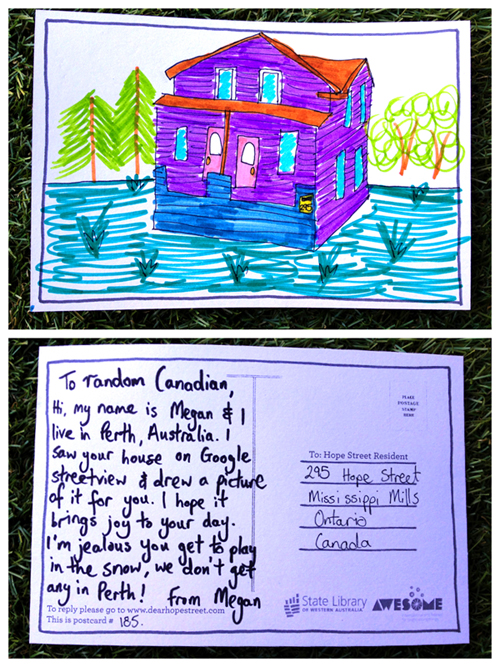 To random Canadian,
Hi, my name is Megan & I
live in Perth, Australia. I
saw your house on Google
streetview & drew a picture
of it for you. I hope it
brings joy to your day.
I'm jealous you get to play
in the snow, we don't get
any in Perth! From Megan
To reply please go to www.dearhopestreet.com
This is postcard # 185.
PLACE
POSTAGE
STAMP
HERE
To: Hope Street Resident
295 Hope Street
Mississippi Mills
Ontario
Canada
State Library
OF WESTERN AUSTRALIA
AWESOME